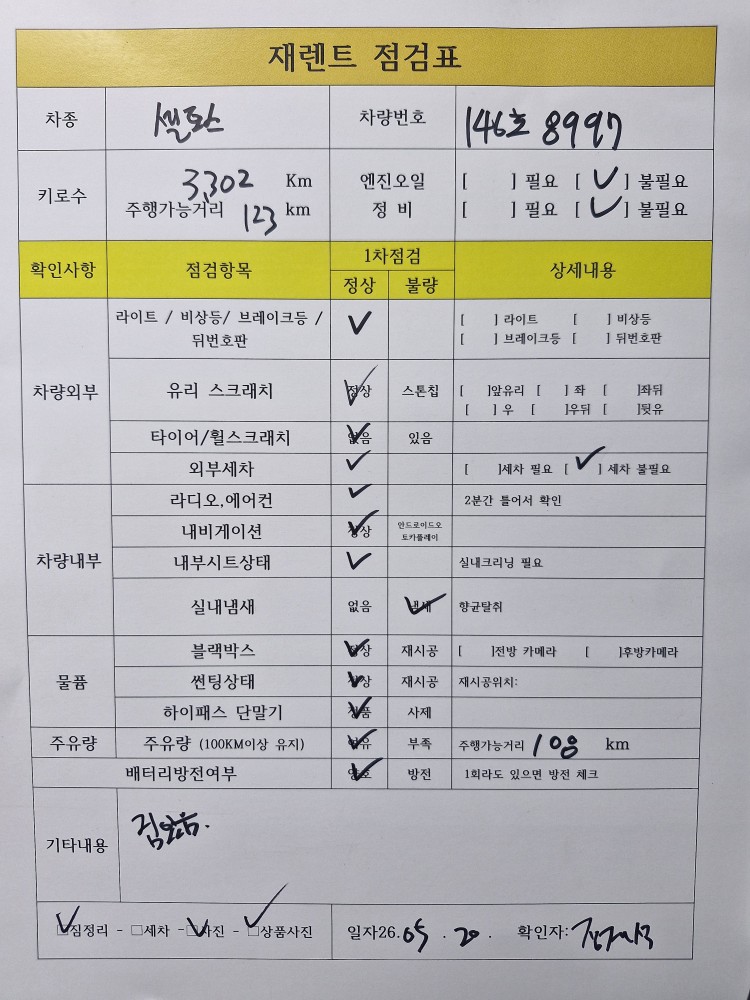 재렌트 점검표
차종 셀토스 차량번호 146호 8997
키로수 3,302 Km 엔진오일 [ ] 필요 [ ✓ ] 불필요
주행가능거리 123 km 정 비 [ ] 필요 [ ✓ ] 불필요
확인사항 점검항목 1차점검 상세내용
정상 불량
차량외부 라이트 / 비상등/ 브레이크등 / 뒤번호판 ✓ [ ] 라이트 [ ] 비상등
[ ] 브레이크등 [ ] 뒤번호판
유리 스크래치 정상 ✓ 스톤칩 [ ]앞유리 [ ] 좌 [ ]좌뒤
[ ] 우 [ ]우뒤 [ ]뒷유
타이어/휠스크래치 없음 ✓ 있음
외부세차 ✓ [ ]세차 필요 [ ✓ ] 세차 불필요
차량내부 라디오,에어컨 ✓ 2분간 틀어서 확인
내비게이션 정상 ✓ 안드로이드오
토카플레이
내부시트상태 ✓ 실내크리닝 필요
실내냄새 없음 냄새 ✓ 향균탈취
물품 블랙박스 정상 ✓ 재시공 [ ]전방 카메라 [ ]후방카메라
썬팅상태 정상 ✓ 재시공 재시공위치:
하이패스 단말기 정품 ✓ 사제
주유량 주유량 (100KM이상 유지) ✓ 부족 주행가능거리 108 km
배터리방전여부 양호 ✓ 방전 1회라도 있으면 방전 체크
기타내용 짐없음.
✓ □짐정리 - □세차 - ✓ □사진 - ✓ □상품사진 일자26. 05 . 20 . 확인자: